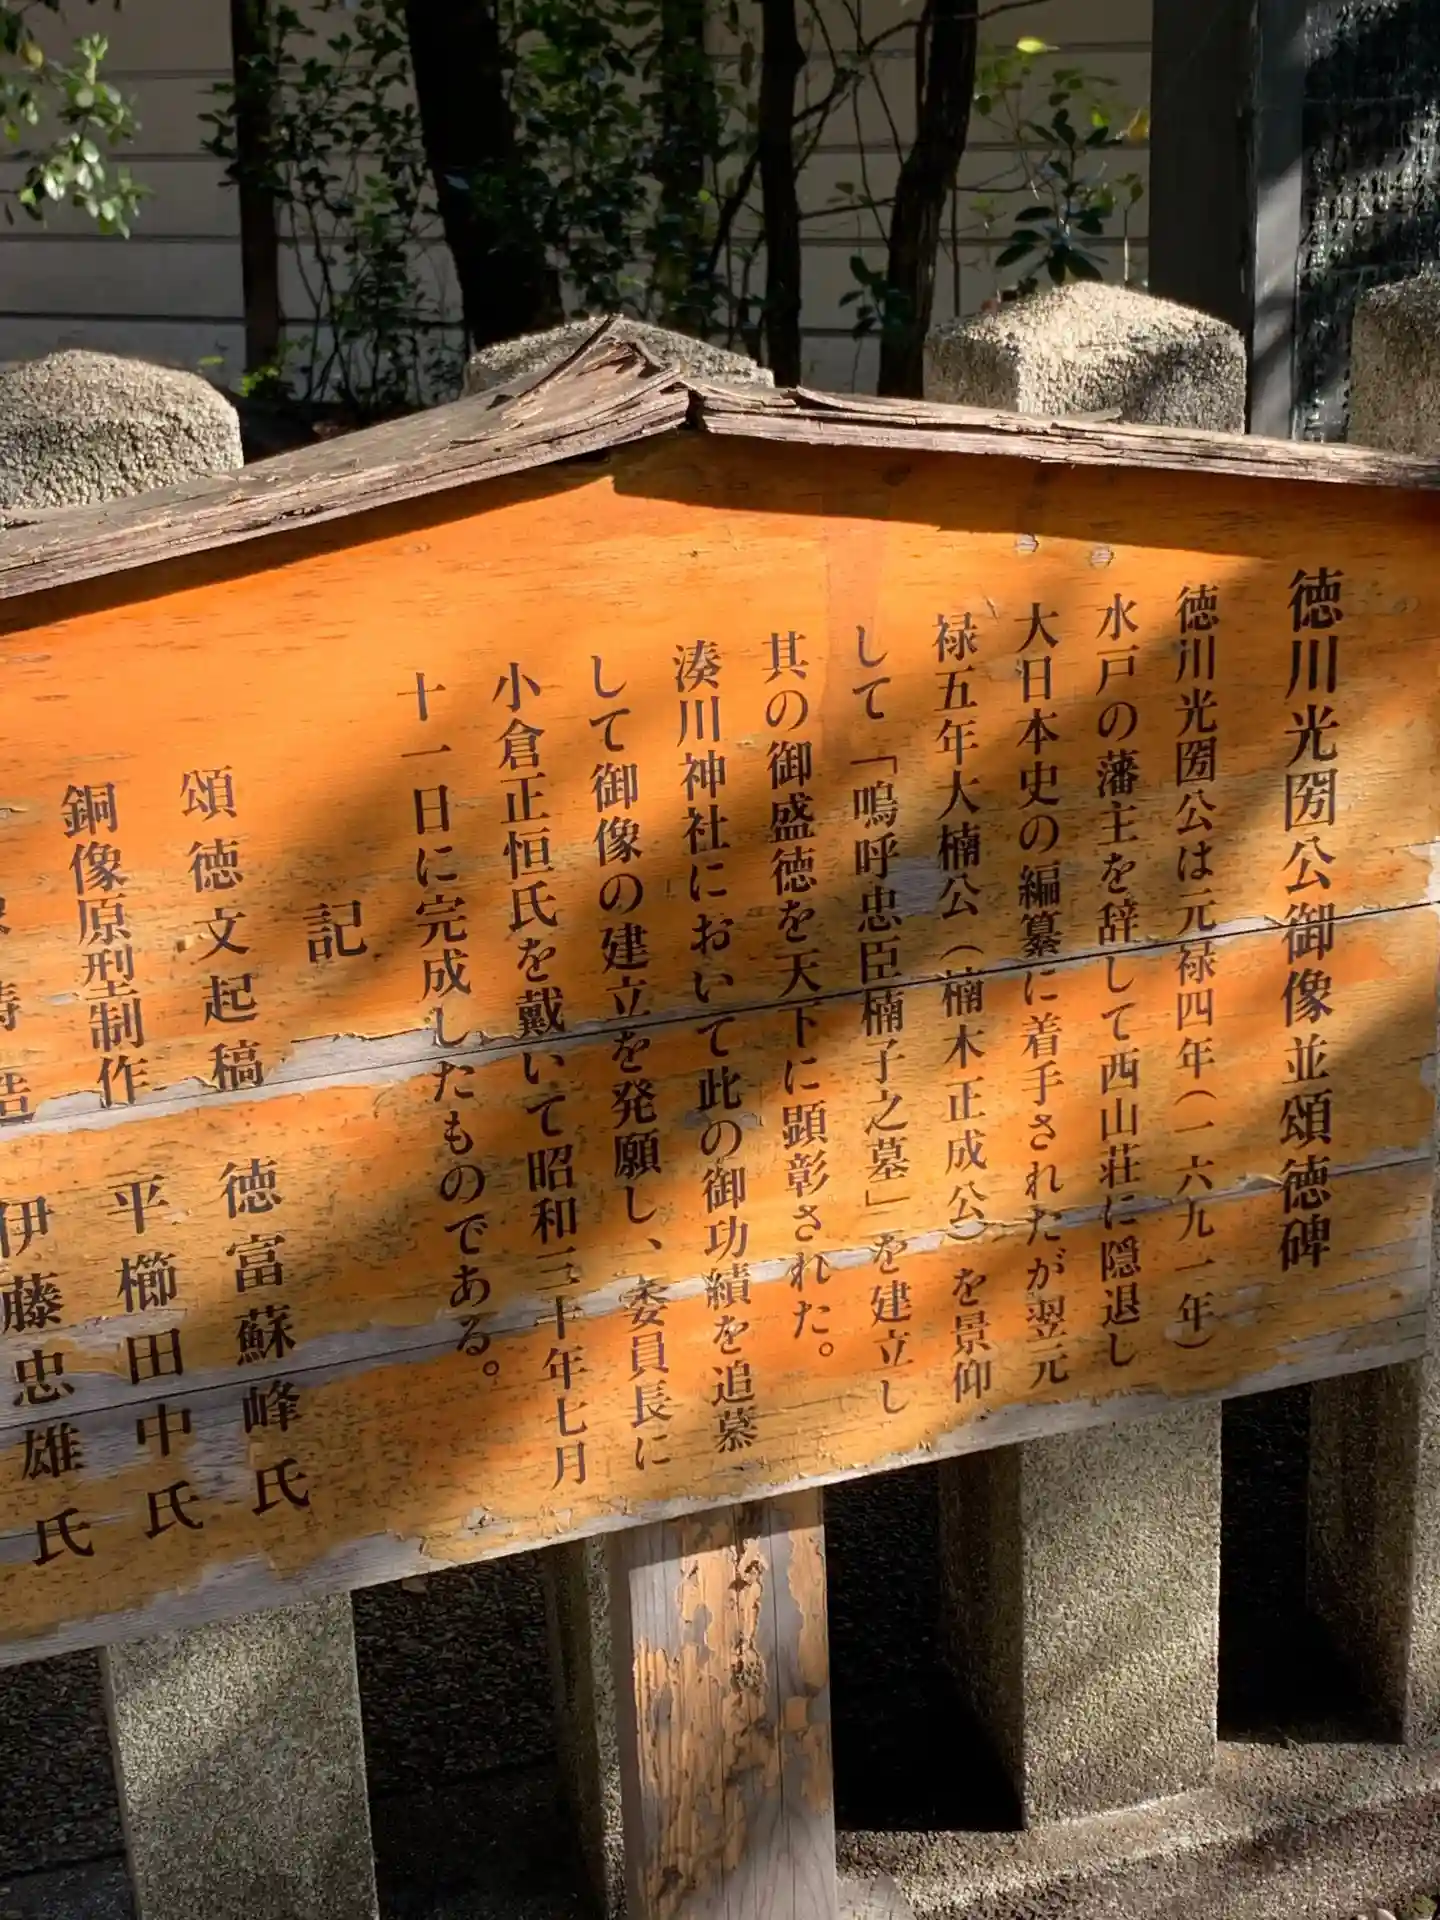 徳川光圀公御像並頌徳碑
徳川光圀公は元禄四年(一六九一年)
水戸の藩主を辞して西山荘に隠退し
大日本史の編纂に着手されたが翌元
禄五年大楠公(楠木正成公)を景仰
して「嗚呼忠臣楠子之墓」を建立し
其の御盛徳を天下に顕彰された。
湊川神社において此の御功績を追慕
して御像の建立を発願し、委員長に
小倉正恒氏を戴いて昭和三十年七月
十一日に完成したものである。
記
頌徳文起稿 徳富蘇峰氏
銅像原型制作 平櫛田中氏
鋳造 伊藤忠雄氏